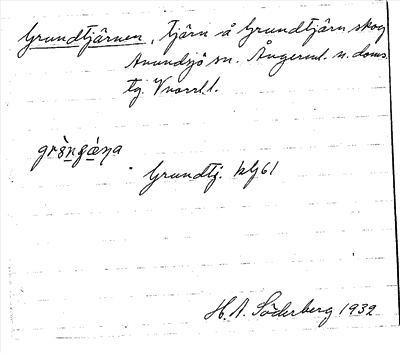 Grundtjärnen, tjärn å Grundtjärn skog
Anundsjö sn. Ångerml. n. doms.
tg. Vnorrl l.
Grundtj. hg 61
H. A. Söderberg 1932